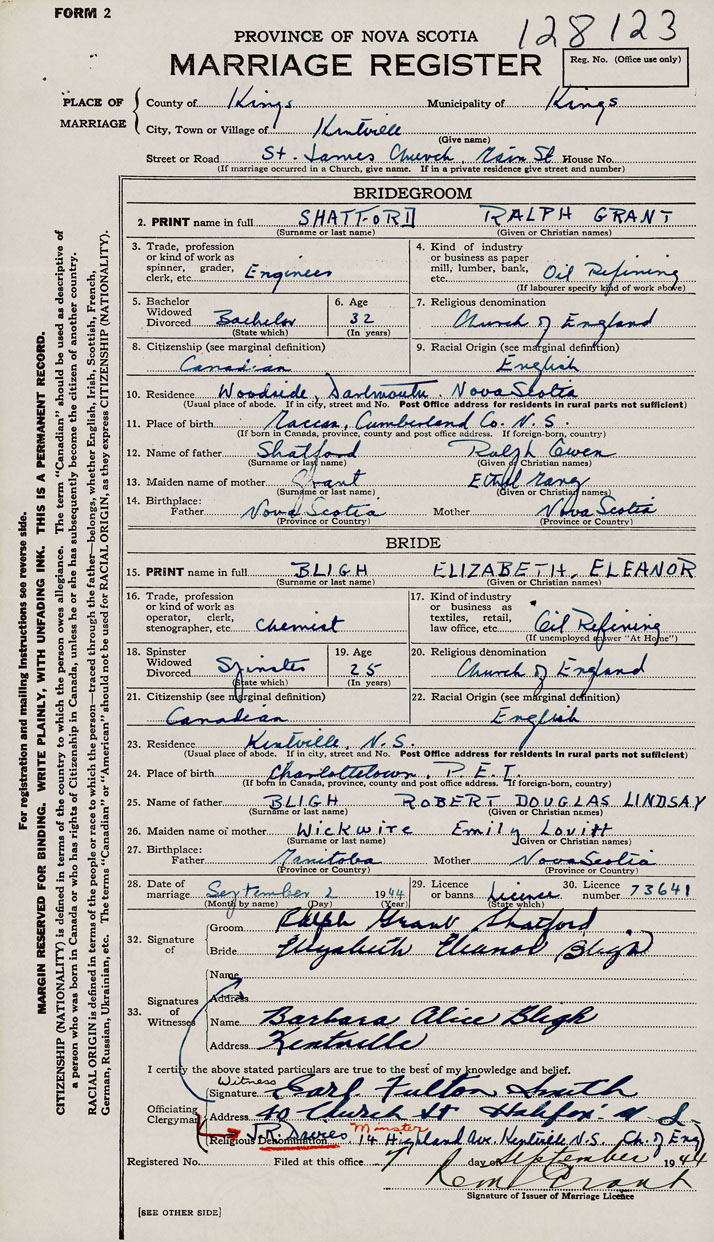 FORM 2
128123
PROVINCE OF NOVA SCOTIA
MARRIAGE REGISTER
Reg. No. (Office use only)
PLACE OF MARRIAGE
County of Kings Municipality of Kings
City, Town or Village of Kentville
(Give name)
Street or Road St. James Church, Main St House No.
(If marriage occurred in a Church, give name. If in a private residence give street and number)
BRIDEGROOM
2. PRINT name in full SHATFORD RALPH GRANT
(Surname or last name) (Given or Christian names)
3. Trade, profession or kind of work as spinner, grader, clerk, etc. Engineer
4. Kind of industry or business as paper mill, lumber, bank, etc. Oil Refining
(If labourer specify kind of work above)
5. Bachelor Widowed Divorced Bachelor
(State which)
6. Age 32
(In years)
7. Religious denomination
Church of England
8. Citizenship (see marginal definition)
Canadian
9. Racial Origin (see marginal definition)
English
10. Residence Woodside, Dartmouth. Nova Scotia
(Usual place of abode. If in city, street and No. Post Office address for residents in rural parts not sufficient)
11. Place of birth Maccan, Cumberland Co. N.S.
(If born in Canada, province, county and post office address. If foreign-born, country)
12. Name of father Shatford Ralph Owen
(Surname or last name) (Given or Christian names)
13. Maiden name of mother Grant Ethel
(Surname or last name) (Given or Christian names)
14. Birthplace: Father Nova Scotia Mother Nova Scotia
(Province or Country) (Province or Country)
BRIDE
15. PRINT name in full BLIGH ELIZABETH, ELEANOR
(Surname or last name) (Given or Christian names)
16. Trade, profession or kind of work as operator, clerk, stenographer, etc. Chemist
17. Kind of industry or business as textiles, retail, law office, etc. Oil Refining
(If unemployed answer "At Home")
18. Spinster Widowed Divorced Spinster
(State which)
19. Age 25
(In years)
20. Religious denomination
Church of England
21. Citizenship (see marginal definition)
Canadian
22. Racial Origin (see marginal definition)
English
23. Residence Kentville, N.S.
(Usual place of abode. If in city, street and No. Post Office address for residents in rural parts not sufficient)
24. Place of birth Charlottetown, P.E.I.
(If born in Canada, province, county and post office address. If foreign-born, country)
25. Name of father BLIGH ROBERT DOUGLAS LINDSAY
(Surname or last name) (Given or Christian names)
26. Maiden name of mother Wickwire Emily Lovitt
(Surname or last name) (Given or Christian names)
27. Birthplace: Father Manitoba Mother Nova Scotia
(Province or Country) (Province or Country)
28. Date of marriage September 2 1944
(Month by name) (Day) (Year)
29. Licence or banns Licence
(State which)
30. Licence number 73641
32. Signature of
Groom Ralph Grant Shatford
Bride Elizabeth Eleanor Bligh
33. Signatures of Witnesses
Name
Address
Name Barbara Alice Bligh
Address Kentville
I certify the above stated particulars are true to the best of my knowledge and belief.
Witness
Officiating Clergyman
Signature Carl Fulton Smith
Address 40 Church St Halifax N.S.
Minister
Religious Denomination Davies 14 Highland Ave. Kentville N.S. Ch. of Eng
Registered No. Filed at this office 7 day of September 1944
Grant
Signature of Issuer of Marriage Licence
[SEE OTHER SIDE]
For registration and mailing instructions see reverse side.
MARGIN RESERVED FOR BINDING. WRITE PLAINLY, WITH UNFADING INK. THIS IS A PERMANENT RECORD.
CITIZENSHIP (NATIONALITY) is defined in terms of the country to which the person owes allegiance. The term "Canadian" should be used as descriptive of
a person who was born in Canada or who has rights of Citizenship in Canada, unless he or she has subsequently become the citizen of another country.
RACIAL ORIGIN is defined in terms of the people or race to which the person—traced through the father—belongs, whether English, Irish, Scottish, French,
German, Russian, Ukrainian, etc. The terms "Canadian" or "American" should not be used for RACIAL ORIGIN, as they express CITIZENSHIP (NATIONALITY).